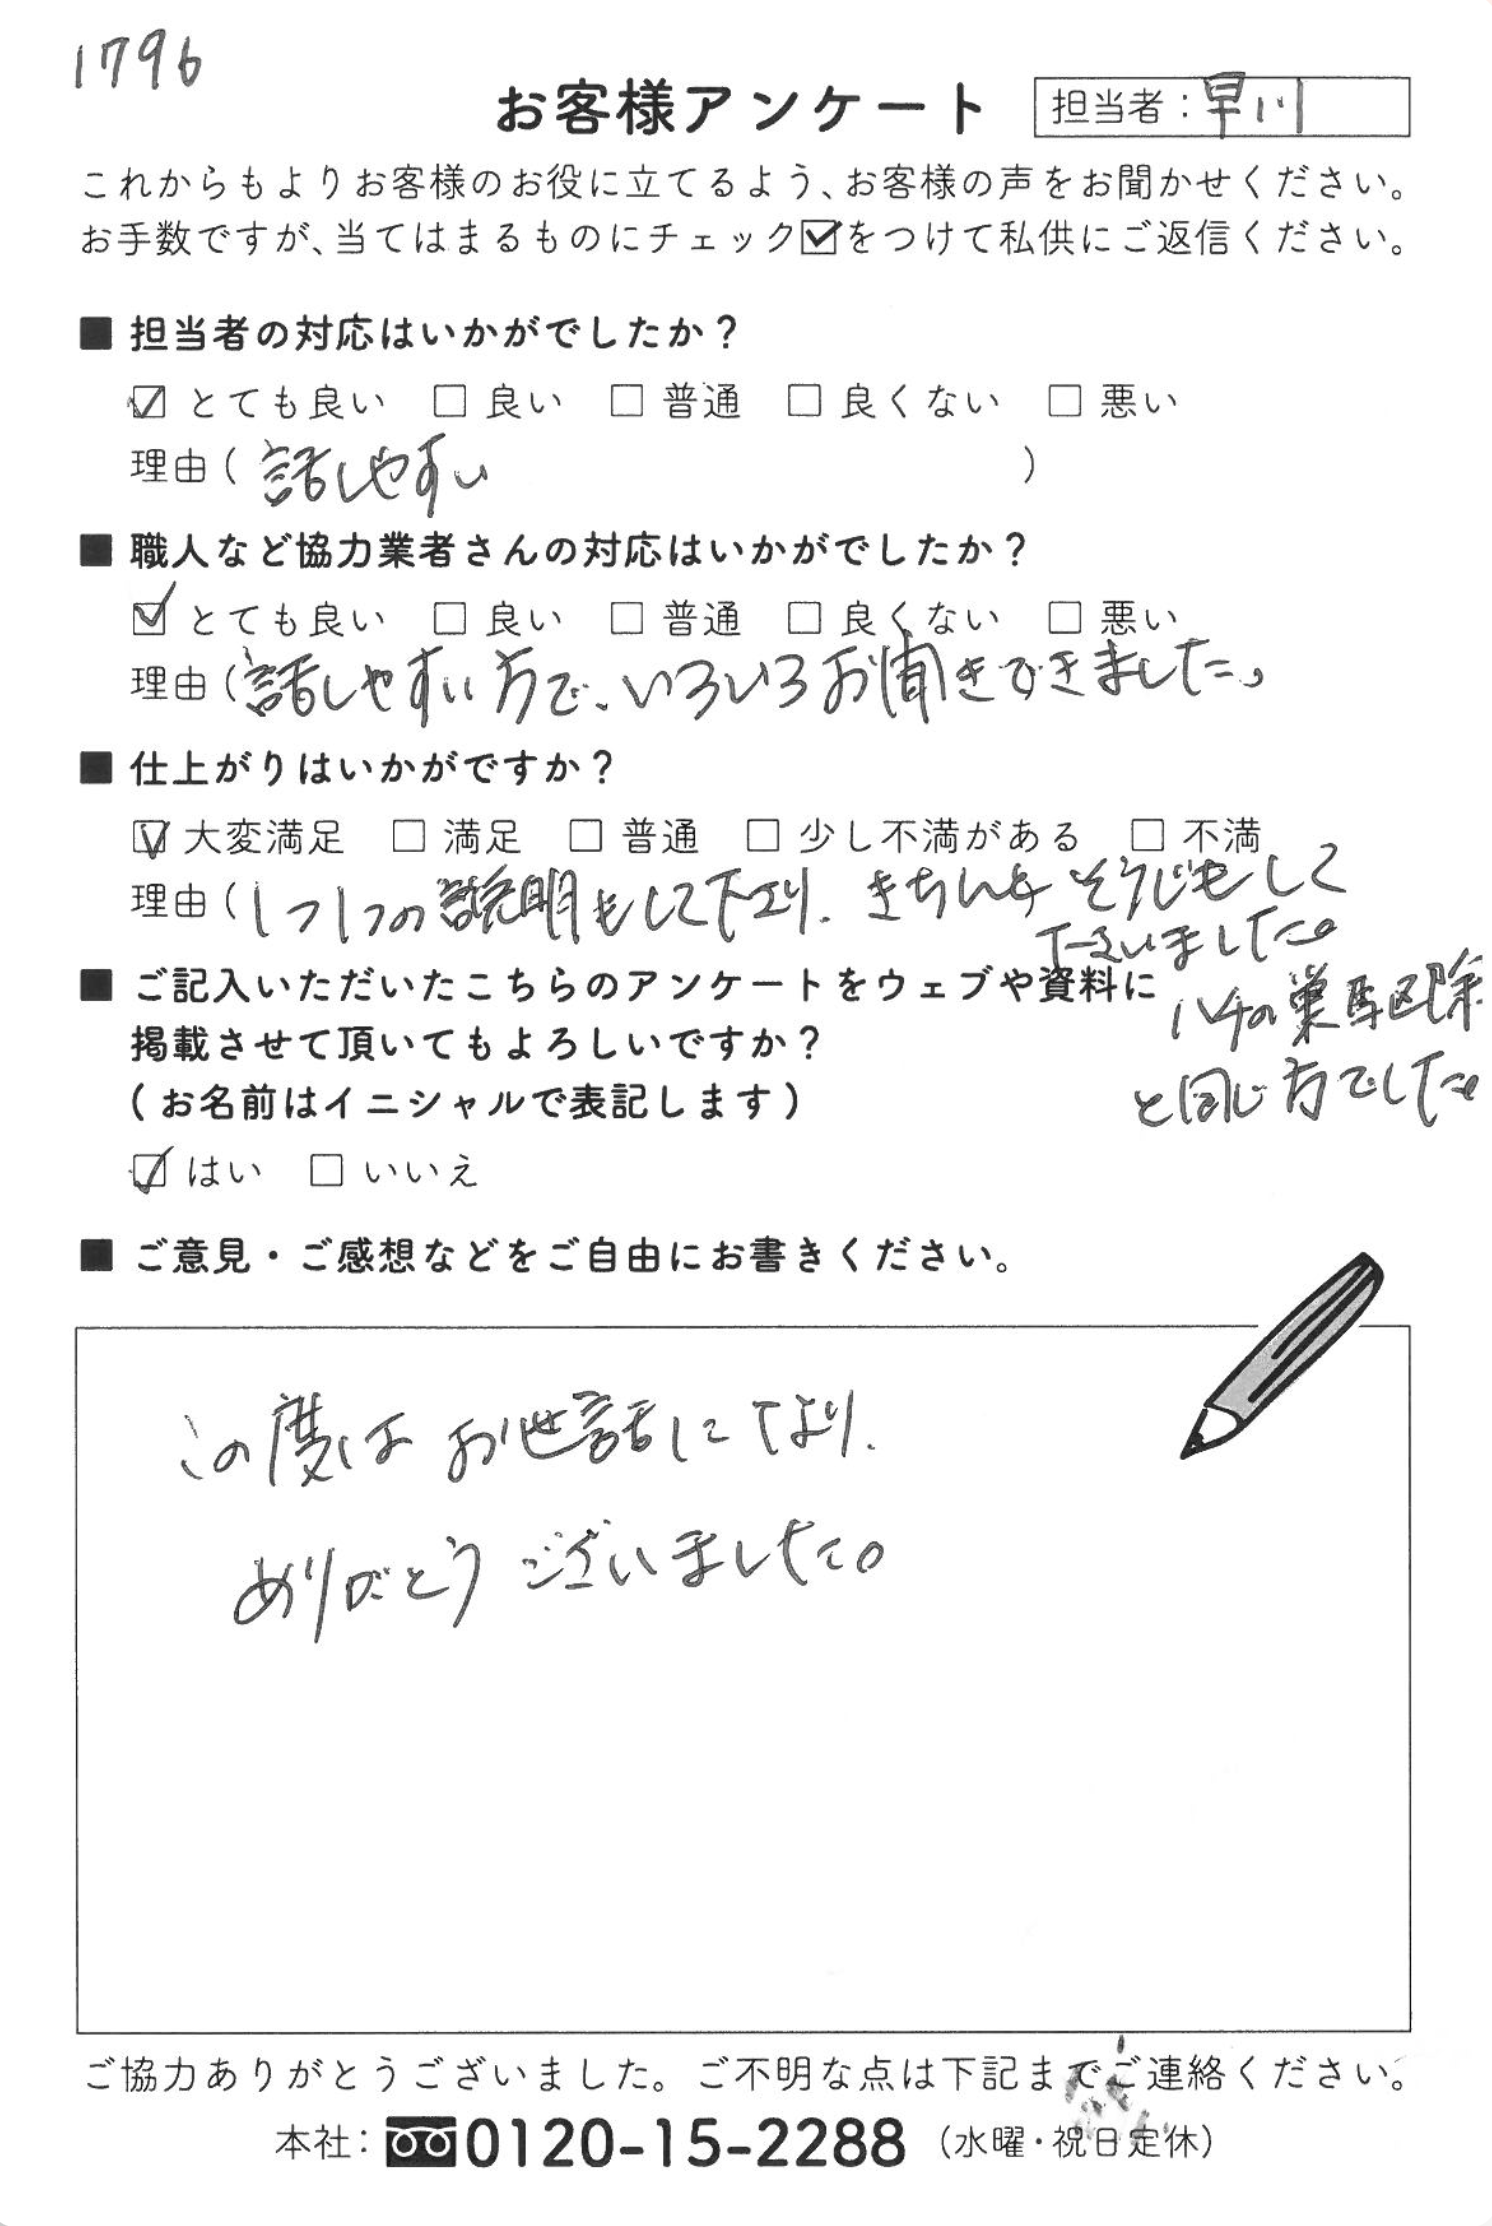 1796
お客様アンケート 担当者：早川
これからもよりお客様のお役に立てるよう、お客様の声をお聞かせください。
お手数ですが、当てはまるものにチェック☑をつけて私供にご返信ください。
■ 担当者の対応はいかがでしたか？
☑ とても良い □ 良い □ 普通 □ 良くない □ 悪い
理由（話しやすい）
■ 職人など協力業者さんの対応はいかがでしたか？
☑ とても良い □ 良い □ 普通 □ 良くない □ 悪い
理由（話しやすい方で、いろいろお聞きできました。
■ 仕上がりはいかがですか？
☑ 大変満足 □ 満足 □ 普通 □ 少し不満がある □ 不満
理由（1つ1つの説明もして下さり、きちんと そうじもして
下さいました。
ハチの巣駆除
と同じ方でした。
■ ご記入いただいたこちらのアンケートをウェブや資料に
掲載させて頂いてもよろしいですか？
（お名前はイニシャルで表記します）
☑ はい □ いいえ
■ ご意見・ご感想などをご自由にお書きください。
この度は お世話になり、
ありがとう ございました。
ご協力ありがとうございました。ご不明な点は下記までご連絡ください。
本社：0120-15-2288（水曜・祝日定休）